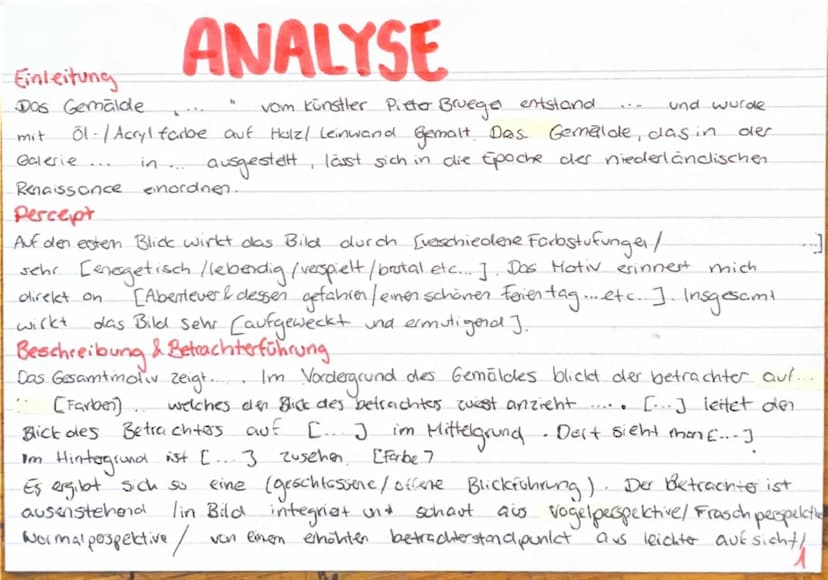 ANALYSE
Einleitung
Das Gemälde „... " vom Künstler Pieter Bruegel entstand ... und wurde
mit Öl-/Acrylfarbe auf Holz/Leinwand gemalt. Das Gemälde, das in der
Galerie ... in ... ausgestellt, lässt sich in die Epoche der niederländischen
Renaissance einordnen.
Percept
Auf den ersten Blick wirkt das Bild durch [verschiedene Farbstufungen/ ...]
sehr [energetisch/lebendig/verspielt/brutal etc...]. Das Motiv erinnert mich
direkt an [Abenteuer & dessen gefahren/einen schönen Feiertag...etc..]. Insgesamt
wirkt das Bild sehr [aufgeweckt und ermutigend].
Beschreibung & Betrachterführung
Das Gesamtmotiv zeigt.... Im Vordergrund des Gemäldes blickt der betrachter auf...
[Farben] .. welches den Blick des betrachters zuerst anzieht ..... [...] leitet den
Blick des Betrachters auf [...] im Mittelgrund. Dort sieht man [...]
Im Hintergrund ist [...] zusehen. [Farbe]
Es ergibt sich so eine (geschlossene/offene Blickführung). Der Betrachter ist
ausenstehend /in Bild integriert und schaut aus Vogelperspektive/Froschperspektive
Normalperspektive/ von einen erhöhten betrachterstandpunkt aus leichter aufsicht/
1